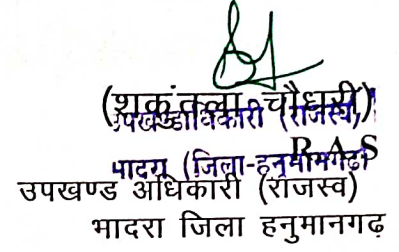 (शकुंतला चौधरी)
उपखण्डाधिकारी (राजस्व)
R A S
भादरा (जिला-हनुमानगढ़)
उपखण्ड अधिकारी (राजस्व)
भादरा जिला हनुमानगढ़